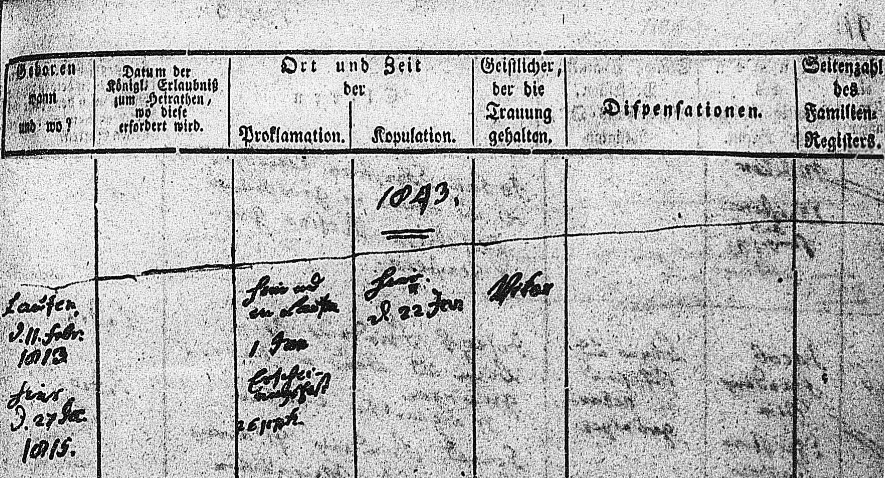 Geboren
wann
und wo?
Datum der
Königl. Erlaubniß
zum Heirathen,
wo diese
erfordert wird.
Ort und Zeit
der
Proklamation.
Kopulation.
Geistlicher,
der die
Trauung
gehalten.
Dispensationen.
Seitenzahl
des
Familien-
Registers.
1843.
Laufen,
d. 11. Febr.
1813
hier
d. 27
1815.
hier und
in Laufen
1 Jan
Erschei-
nungsfest
2 Epiph.
hier.
d. 22 Jan